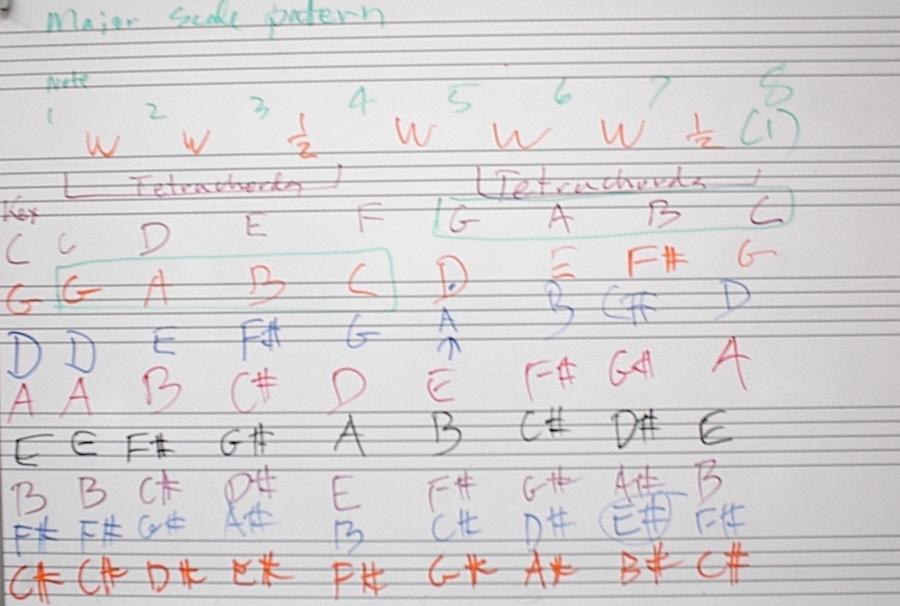 Major Scale patern
Note
1 2 3 4 5 6 7 8
W W ½ W W W ½ (1)
Tetrachords Tetrachords
Key
C C D E F G A B C
G G A B C D E F# G
D D E F# G A B C# D
A A B C# D E F# G# A
E E F# G# A B C# D# E
B B C# D# E F# G# A# B
F# F# G# A# B C# D# E# F#
C# C# D# E# F# G# A# B# C#